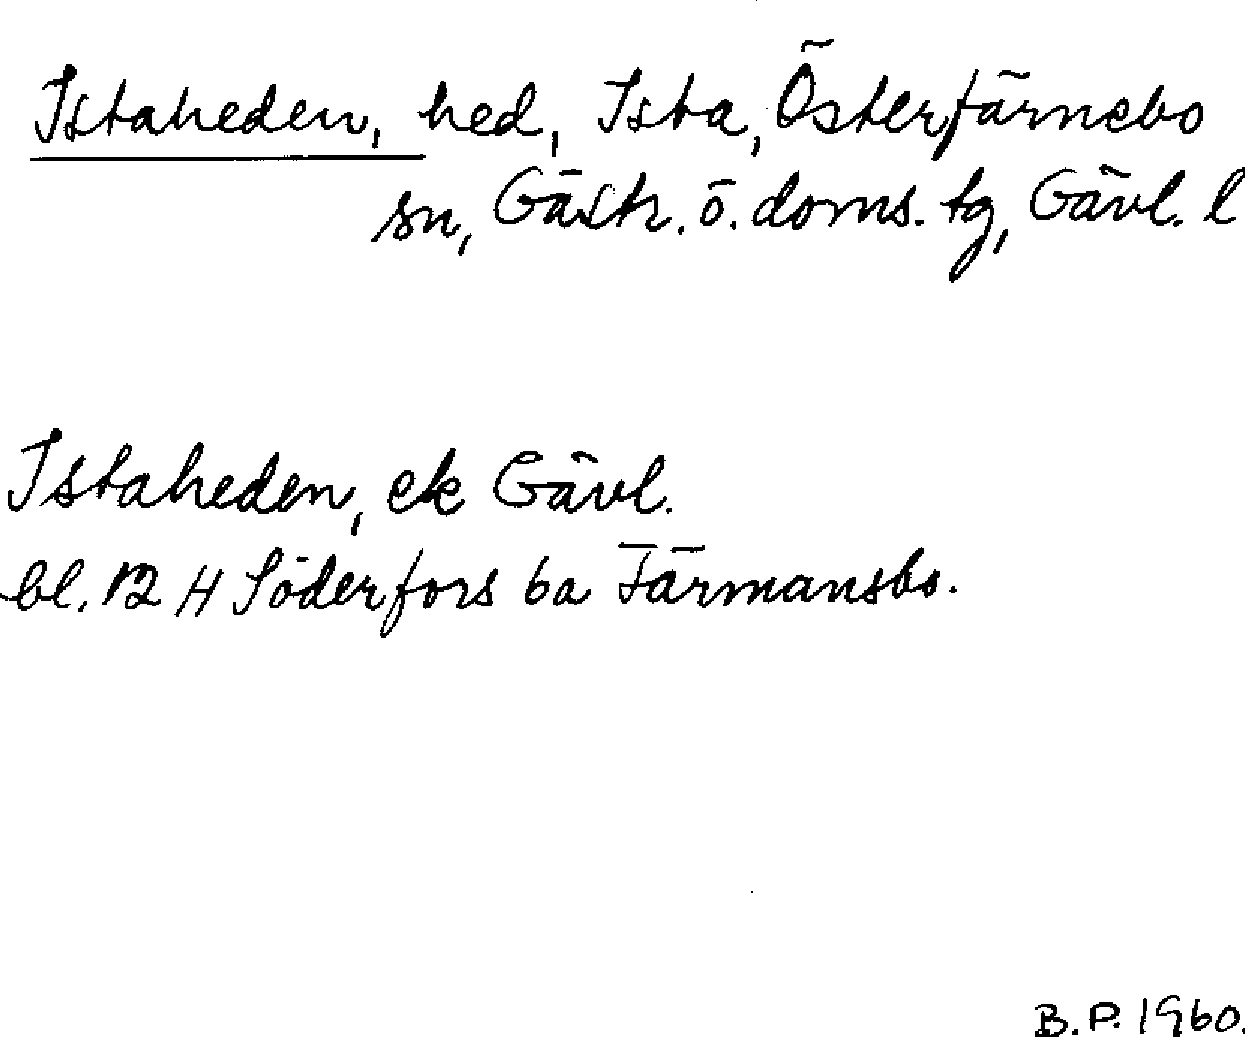 Istaheden, hed, Ista, Österfärnebo
sn, Gästr. ö. doms. tg, Gävl. l
Istaheden, ek Gävl.
bl. 12 H Söderfors 6a Färmansbo.
B.P. 1960.